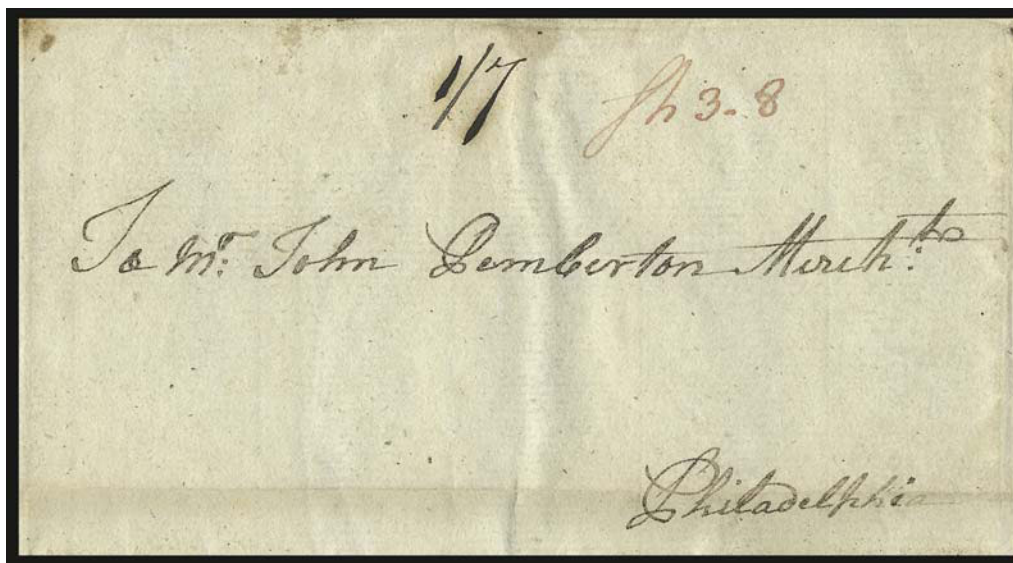 1/7 Sh 3-8
To Mr. John Pemberton Merch:t
Philadelphia